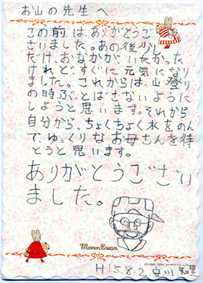 お山の先生へ
この前は、ありがとうご
ざいました。あの後少し
だけ、おなかが、いたかった
けれど、すぐに元気になり
ました。これからは、山登り
の時、ぶとばさないように
しようと思います。それから
自分から、ちょくちょく水をのん
で、ゆっくりなお母さんを待
とうと思います。
ありがとうござい
ました。
H15.8.2